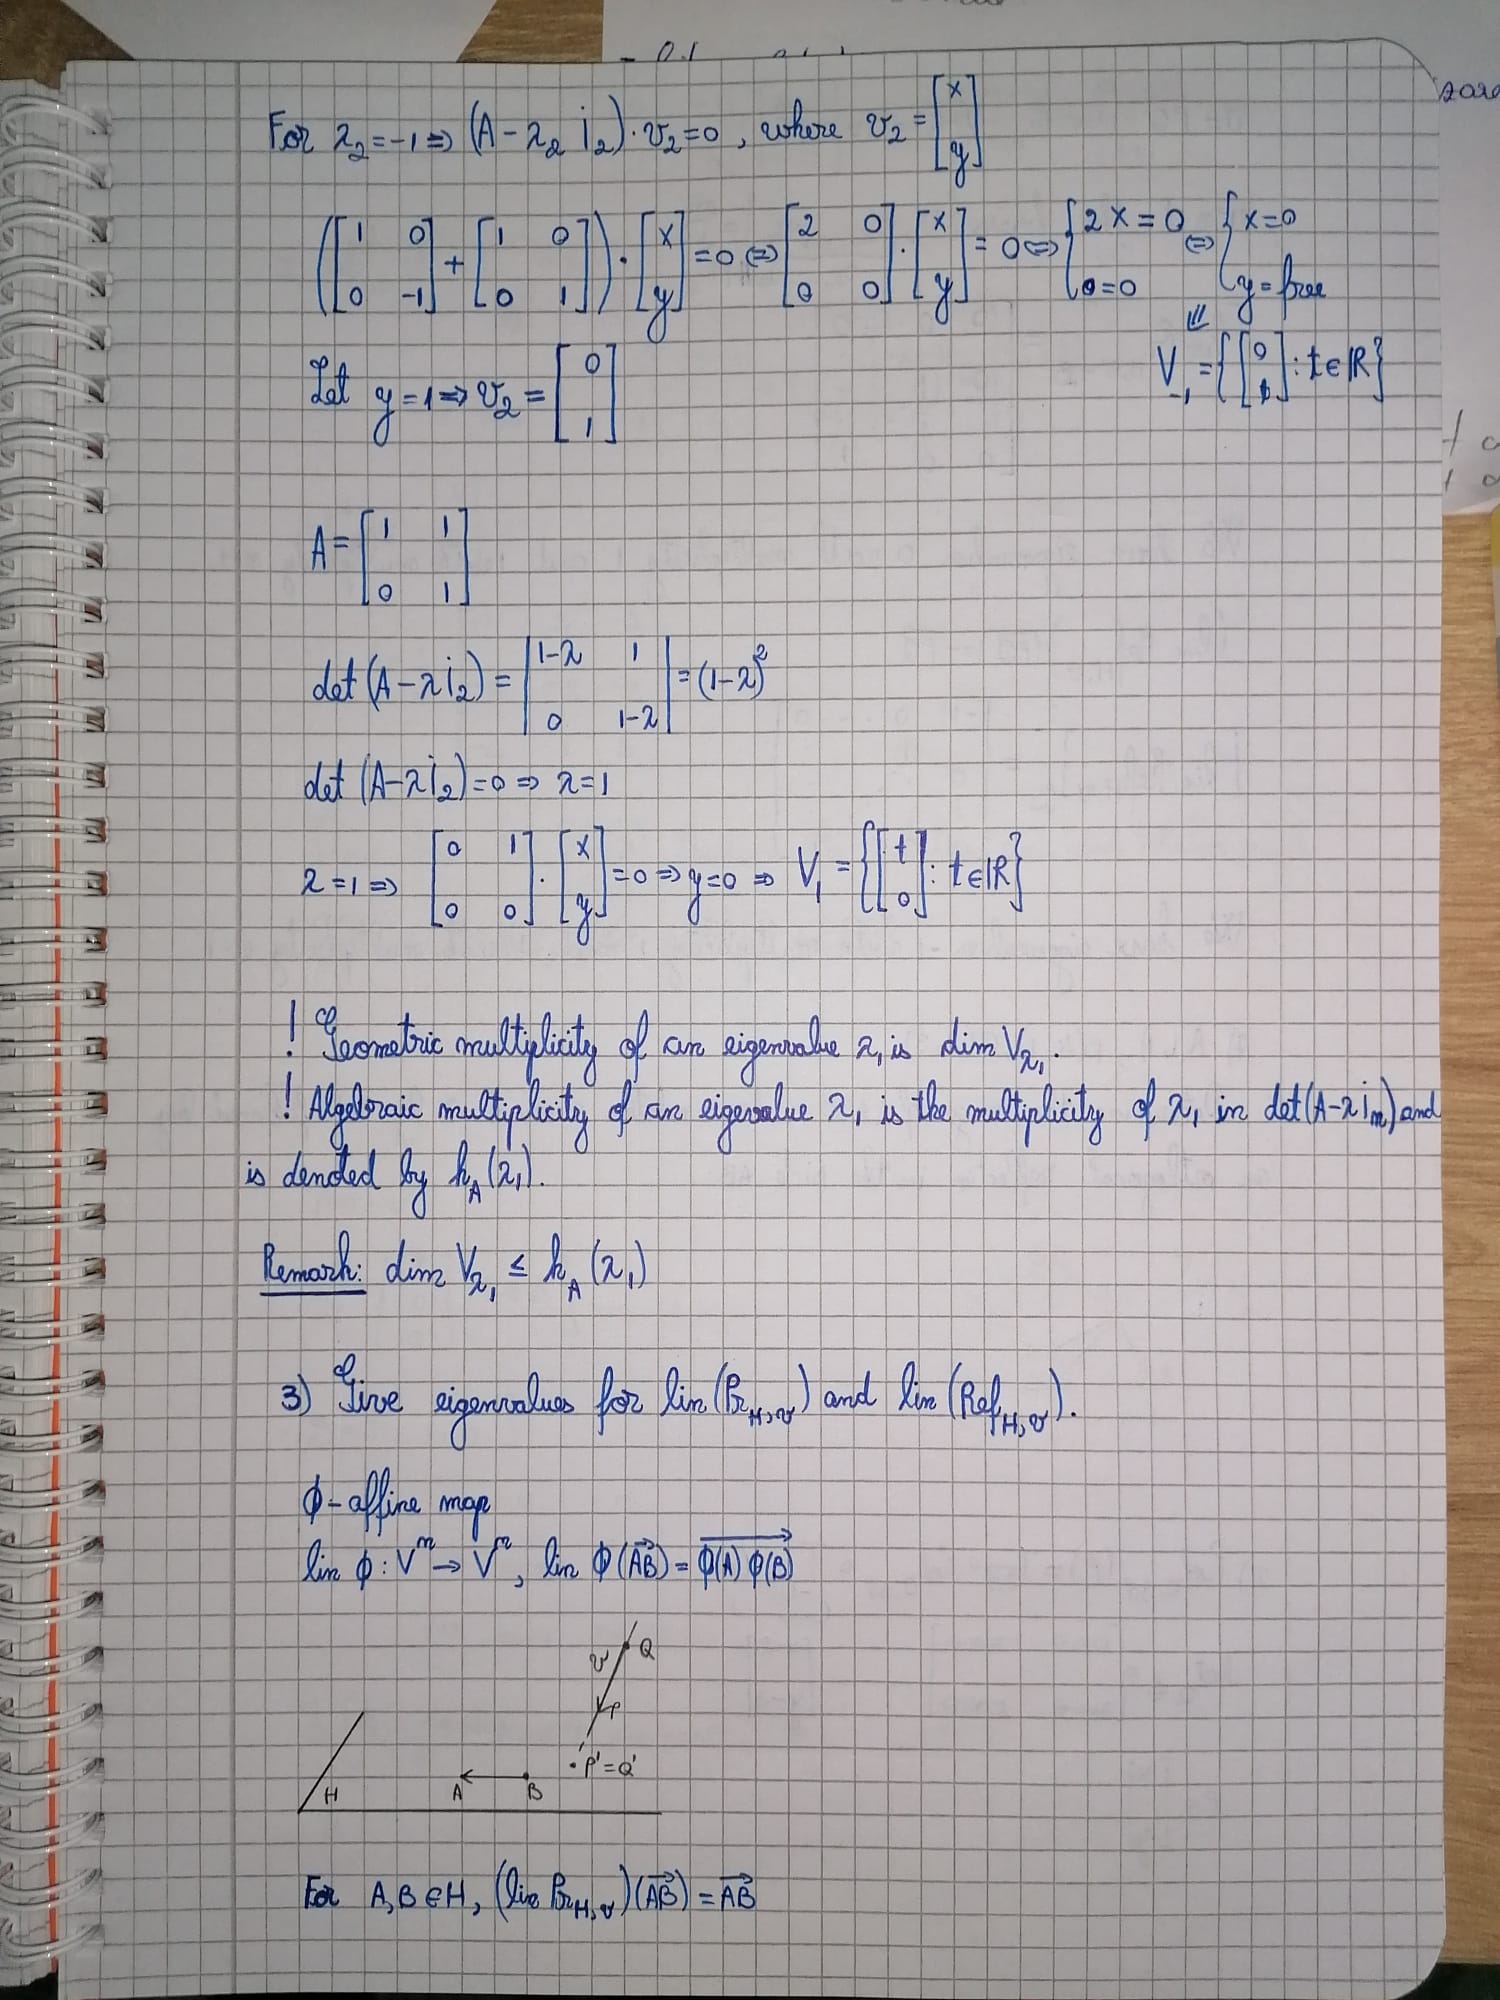 For λ₂=-1 ⇒ (A-λ₂ I₂)·v₂=0, where v₂=[x y]
([1 0 0 -1]+[1 0 0 1])·[x y]=0 ⇔ [2 0 0 0]·[x y]=0 ⇔ {2x=0 0=0 ⇔ {x=0 y=free
Let y=1 ⇒ v₂=[0 1]
⇓ V₋₁={[0 t]: t∈ℝ}
A=[1 1 0 1]
det(A-λI₂)=|1-λ 1 0 1-λ|=(1-λ)²
det(A-λI₂)=0 ⇒ λ=1
λ=1 ⇒ [0 1 0 0]·[x y]=0 ⇒ y=0 ⇒ V₁={[t 0]: t∈ℝ}
! Geometric multiplicity of an eigenvalue λ₁ is dim V_λ₁.
! Algebraic multiplicity of an eigevalue λ₁ is the multiplicity of λ₁ in det(A-λIₙ) and
is denoted by h_A(λ₁).
Remark: dim V_λ₁ ≤ h_A(λ₁)
3) Give eigenvalues for lin(Pr_H,v) and lin(Ref_H,v).
ϕ-affine map
lin ϕ: Vⁿ→Vⁿ, lin ϕ(AB)=ϕ(A)ϕ(B)
v Q
P
P'=Q'
H A B
For A,B∈H, (lin Pr_H,v)(AB)=AB